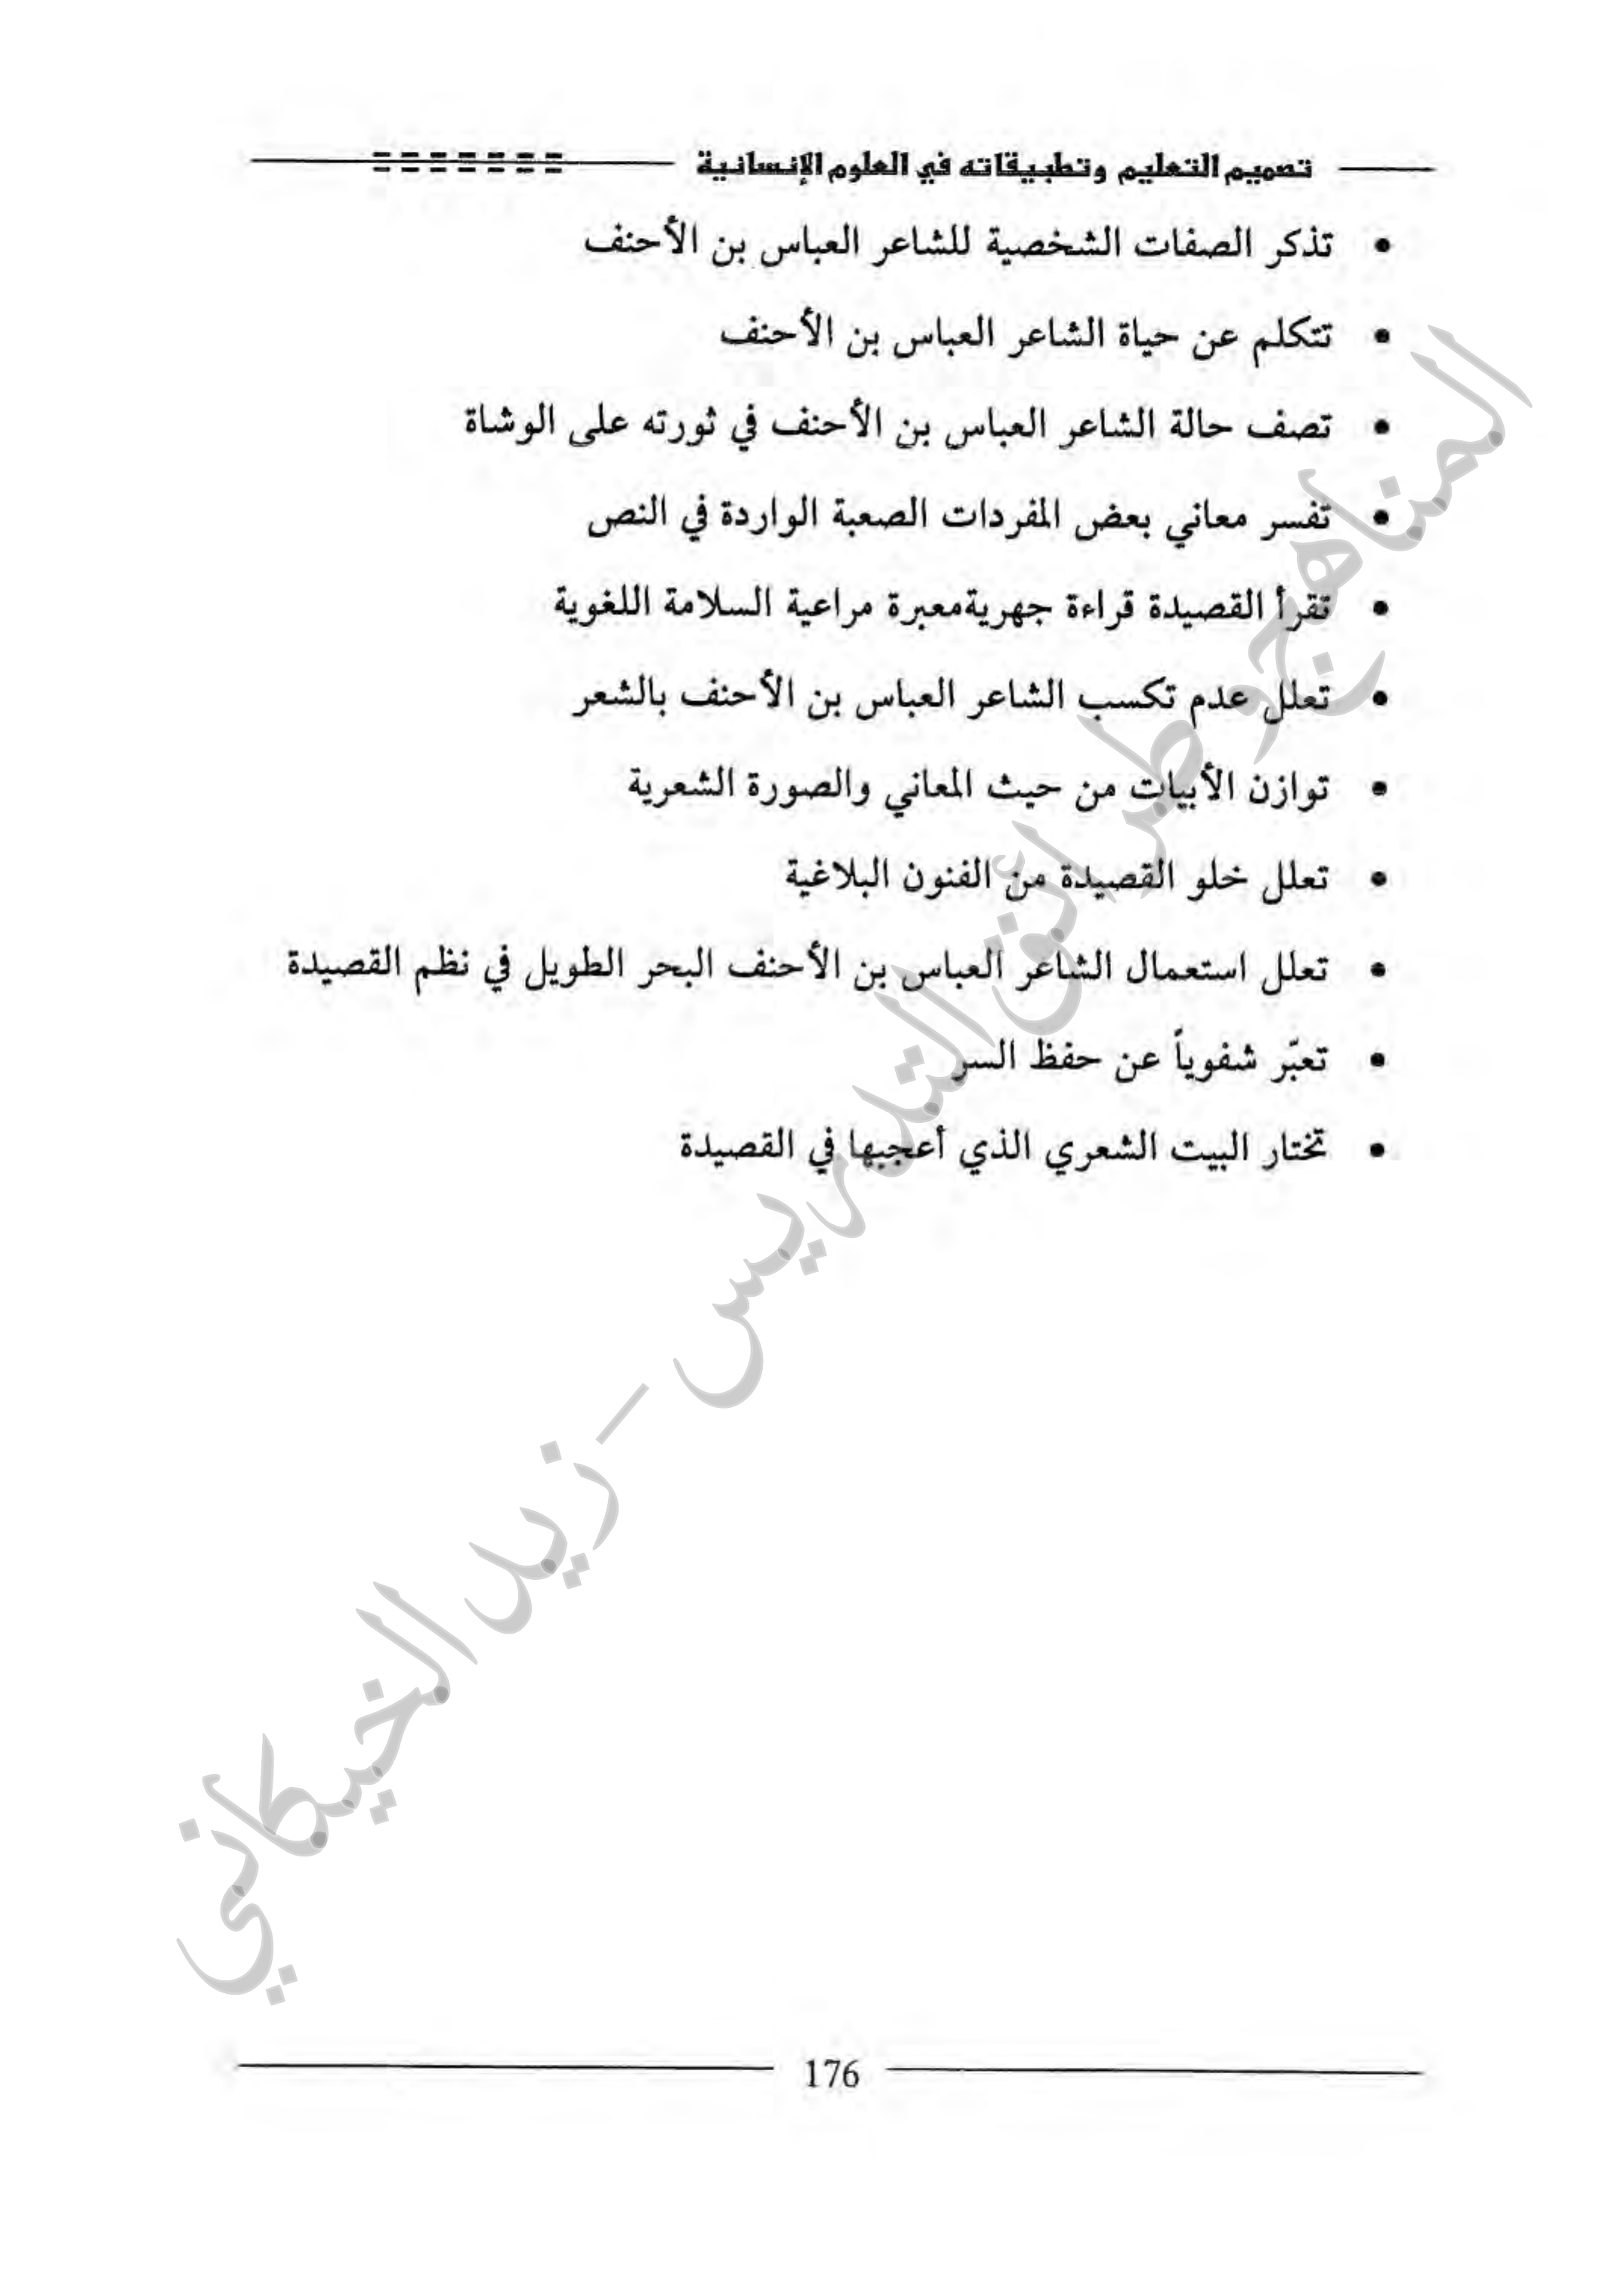 تصميم التعليم وتطبيقاته في العلوم الإنسانية
• تذكر الصفات الشخصية للشاعر العباس بن الأحنف
• تتكلم عن حياة الشاعر العباس بن الأحنف
• تصف حالة الشاعر العباس بن الأحنف في ثورته على الوشاة
• تفسر معاني بعض المفردات الصعبة الواردة في النص
• تقرأ القصيدة قراءة جهريةمعبرة مراعية السلامة اللغوية
• تعلل عدم تكسب الشاعر العباس بن الأحنف بالشعر
• توازن الأبيات من حيث المعاني والصورة الشعرية
• تعلل خلو القصيدة من الفنون البلاغية
• تعلل استعمال الشاعر العباس بن الأحنف البحر الطويل في نظم القصيدة
• تعبّر شفوياً عن حفظ السر
• تختار البيت الشعري الذي أعجبها في القصيدة
المناهج وطرائق التدريس - زيد الخيكاني
176